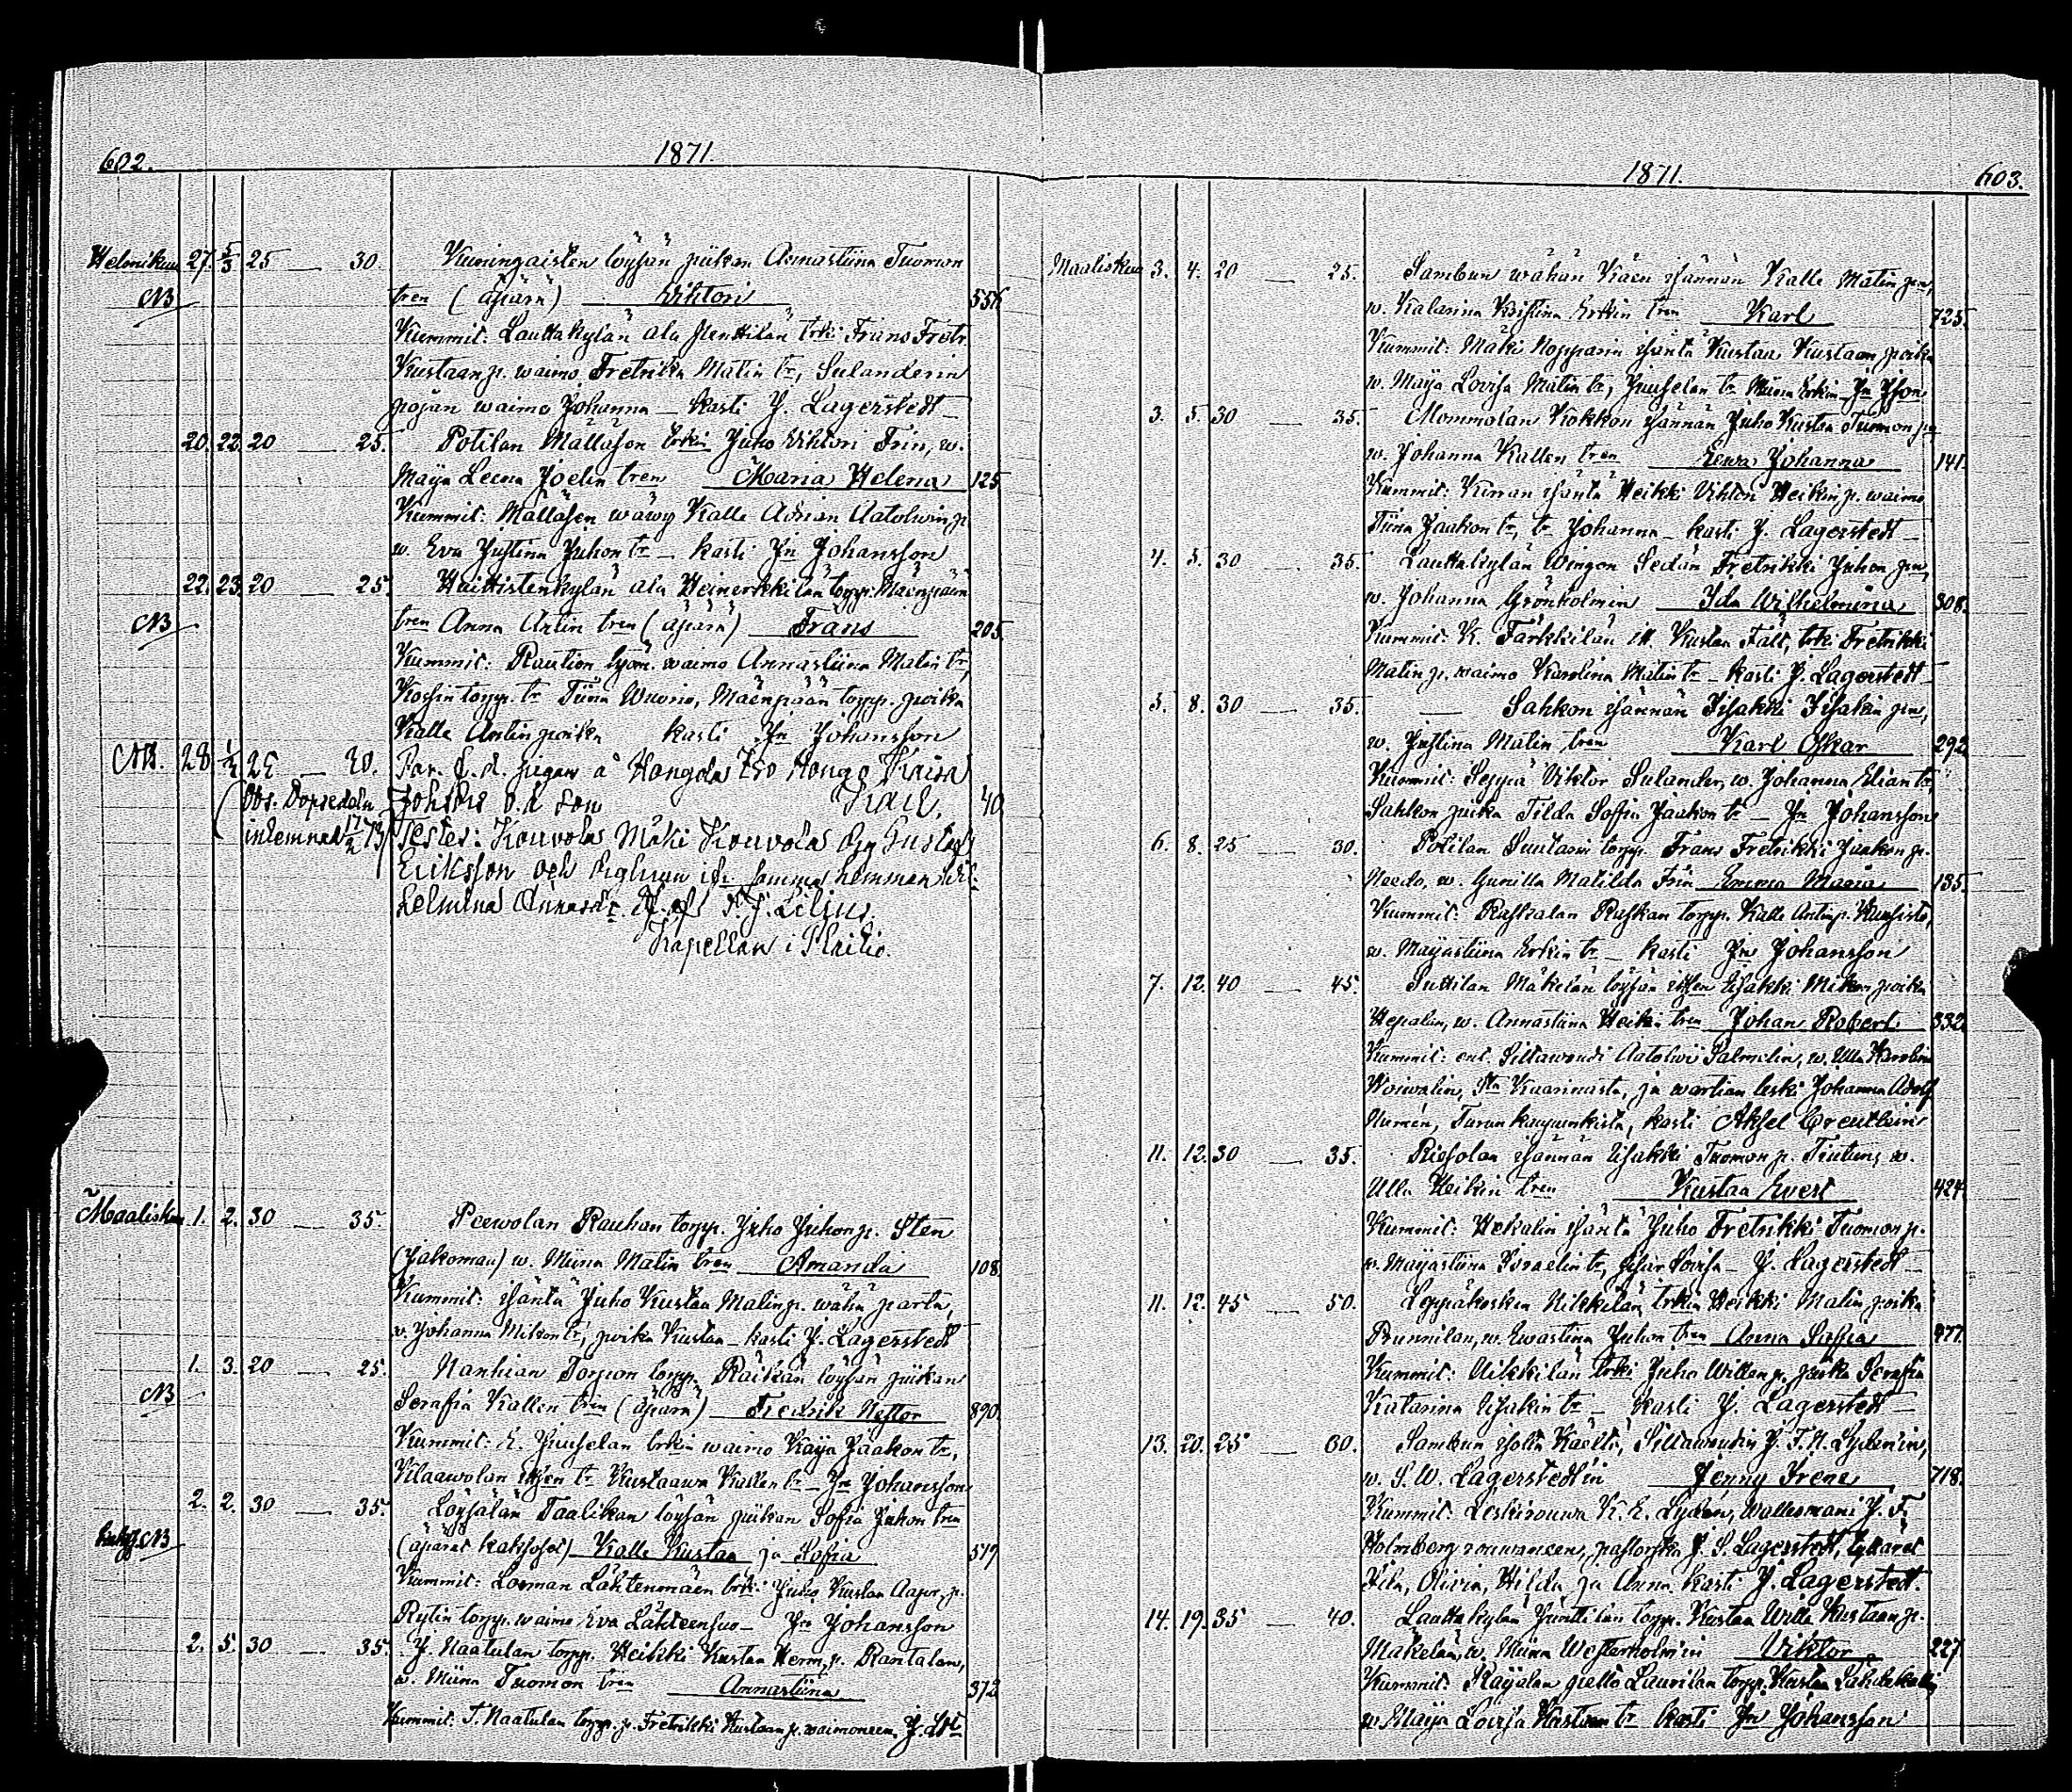 602. 1871.
Helmikuu 27. 5/3 25 — 30. Kuningaisten löysän piikan Annastiina Tuomon
NB tren (äpärä) Viktori 556
Kummit: Lauttakylän alu trki Frans Fretr.
Kustaanp. waimo Fretrika Matin tr, Sulanderin
pojan waimo Johanna — kasti J. Lagerstedt —
20. 22. 20 — 25. Potilan Mälläsen trkin Juho Viktori Frin, w.
Maija Leena Joelin tren Maria Helena 125
Kummit: Mälläsen wäwy Kalle Adrian Aatolwin p
w. Eva Justina Juhon tr — kasti Jn Johansson
22. 23. 20 — 25. Huittistenkylän alu Heinerkkilän torpp. Mäenpään
NB tren Anna Antin tren (äpärä) Frans 205
Kummit: Raution työm. waimo Annastiina Matin tr,
torpp. tr Tiina Mäenpään torpp. poika
Kalle Antin poika kasti Jn Johansson
NB. 28. 25 — 30. Par. Hongola Iso Hongo Kaisa
Obs. Dopsedeln o. ä son Karl, 40
inlemnad 17/2 73 Testes: Kouvola Mäki Kouvola Gustaf
Eriksson och samma hemman
J. Lilius.
Kapellan i
Maaliskuu 1. 2. 30 — 35. Peewolan Rauhan torpp. Juho Juhonp. Sten
(Jalkoman) w. Miina Matin tren Amanda 108.
Kummit: isäntä Juho Kustaa Matinp. wähä parta,
w. Johanna Mikon tr, poika Kustaa — kasti J. Lagerstedt
1. 3. 20 — 25. Nanhian Torpon torpp. Räikän löysän piikan
NB Serafia Kallen tren (äpärä) Fredrik Nestor 890.
Kummit: E. Juuselan trkin waimo Kaija Jaakon tr,
tr Kustaawa Kallen tr — Jn Johansson
2. 2. 30 — 35. Löysälän Taalikan löysän piikan Sofia Juhon tren
NB (äpärät kaksoset) Kalle Kustaa ja Sofia 577
Kummit: Loeman Lähtenmäen trki Juho Kustaa
Rytin torpp. waimo Eva — Jn Johansson
2. 5. 30 — 35. J. Naatulan torpp. Heikki Kustaa Herm. p. Rantalan,
w. Miina Tuomon tren Annastiina 372
Kummit: T. Naatulan torpp. p. Fretrikki Kustaan p. waimoneen J. Ldt
1871. 603.
Maaliskuu 3. 4. 20 — 25. Sambun wähän Käen isännän Kalle Matin pn,
w. Katarina Kristina Erkin tren Karl 725.
Kummit: Mäki Nopparin isäntä Kustaa Kustaan poika
w. Maija Lovisa Matin tr, Juuselan tr Miina Erkin — Jn Json
3. 5. 30 — 35. Mommolan Kokkon isännän Juho Kustaa Tuomon pn
w. Johanna Kallen tren Eewa Johanna 141.
Kummit: Kirran isäntä Heikki Viktori Heikin p. waimo
Tiina Jaakon tr, tr Johanna — kasti J. Lagerstedt —
4. 5. 30 — 35. Lauttakylän Wingon Sedän Fretrikki Juhon pn,
w. Johanna Grönholmin Ida Wilhelmina 308.
Kummit: K. Färkkilän it. Kustaa Fält, trki Fretrikki
Matin p. waimo Karolina Matin tr — kasti J. Lagerstedt
5. 8. 30 — 35. — Sahkon isännän Iisakki Iisakin pn,
w. Justina Matin tren Karl Oskar 292
Kummit: Seppä Viktor Sulander, w. Johanna Elian tr,
Sahkon piika Tilda Sofia Jaakon tr — Jn Johansson
6. 8. 25 — 30. Potilan Suutarin torpp. Frans Fretrikki Jaakon p.
w. Gunilla Matilda Emma Maria 135.
Kummit: Raskalan Raskan torpp. Kalle Antinp. Kuusisto,
w. Maijastiina Erkin tr — kasti Jn Johansson
7. 12. 40 — 45. Suttilan Mäkelän löysän Iisakki Mikon poika
w. Annastiina Heikin tren Johan Robert 332
Kummit: ent. Siltawouti Aatolwi Salmelin, w. Ulla Karolina
Woiwalin, Sta Kaarinasta, ja wartian leski Johanna Adolf.
Numén, Turun kaupunkista, kasti Aksel Creutlein
11. 12. 30 — 35. Riesolan isännän Iisakki Tuomon p. w.
Ulla Heikin tren Kustaa Evert 424.
Kummit: isäntä Juho Fretrikki Tuomon p.
w. Maijastiina Israelin tr, sisar Lovisa — J. Lagerstedt —
11. 12. 45 — 50. Leppäkosken Nikkilän trkin Heikki Matin poika
w. Ewastina Juhon tren Anna Soffia 477.
Kummit: Nikkilän trki Juho Willen p. piika Serafia
Katarina Iisakin tr — kasti J. Lagerstedt —
13. 20. 25 — 30. Sambun isolta Käeltä, Siltawoudin J. F. N. Lydenin,
w. S. W. Lagerstedtin Jenny Irene 718.
Kummit: Leskirouwa K. E. Lydén, Wallesmani J. F.
Holmberg rouwaneen, pastorska J. S. Lagerstedt, tyttäret
Olivia, Hilda ja Anna. kasti J. Lagerstedt.
14. 19. 35 — 40. Lauttakylän torpp. Kustaa Wille Kustaan p.
Mäkelän, w. Miina Westerholmin Viktor 227.
Kummit: Raijalan pelto Laurilan torpp. Kustaa
w. Maija Lovisa Kustaan tr kasti Jn Johansson